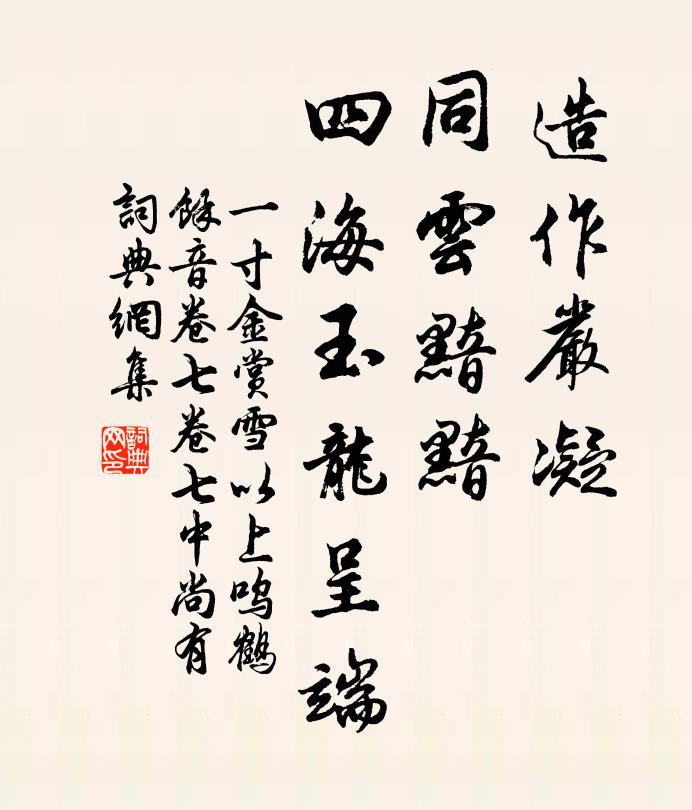 造作嚴凝
同雲黯黯
四海玉龍呈端
一寸金賞雪以上鸣鶴
餘音卷七卷七中尚有
詞典網集
詞典
网印